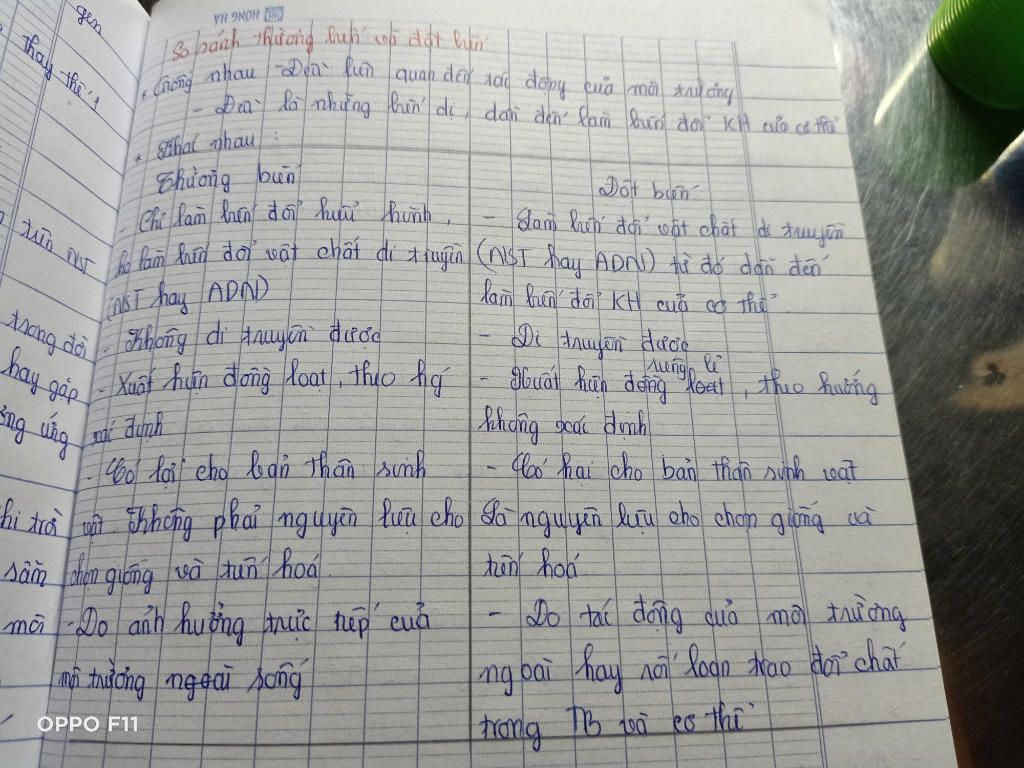 HONG HA
So sánh thường biến và đột biến
* Giống nhau - Đều liên quan đến tác động của môi trường
- Đều là những biến dị, dẫn đến làm biến đổi KH của cơ thể
* Khác nhau :
Thường biến
- Chỉ làm biến đổi kiểu hình,
ko làm biến đổi vật chất di truyền
(NST hay ADN)
- Không di truyền được
- Xuất hiện đồng loạt, theo hg
xác định
- Có lợi cho bản thân sinh
vật Không phải nguyên liệu cho
chọn giống và tiến hoá
- Do ảnh hưởng trực tiếp của
môi trường ngoài sống
Đột biến
- Làm biến đổi vật chất di truyền
(NST hay ADN) từ đó dẫn đến
làm biến đổi KH của cơ thể
- Di truyền được
riêng lẻ
- Xuất hiện đồng loạt, theo hướng
không xác định
- Có hại cho bản thân sinh vật
Là nguyên liệu cho chọn giống và
tiến hoá
- Do tác động quả môi trường
ngoài hay rối loạn trao đổi chất
trong TB và cơ thể
gen
thay thế
trên NST
trong đó
hay gặp
ứng
sắm
môi
OPPO F11